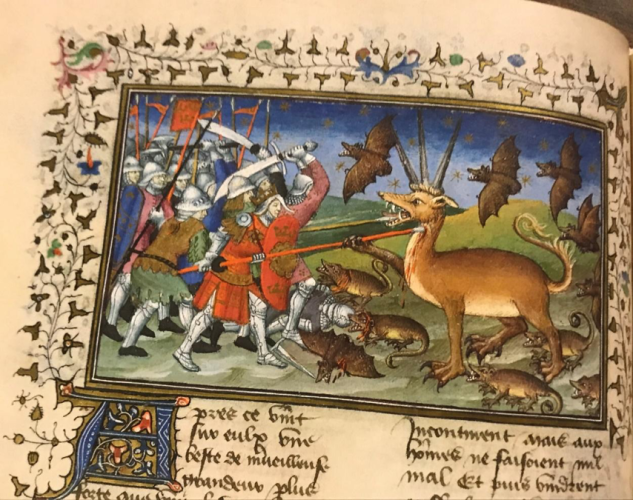 Apres ce vint
sur eulx une
beste de mueilleuse
grandeur plus
forte que
Incontinent mais aux
hōmes ne faisoient nul
mal Et puis vindrent